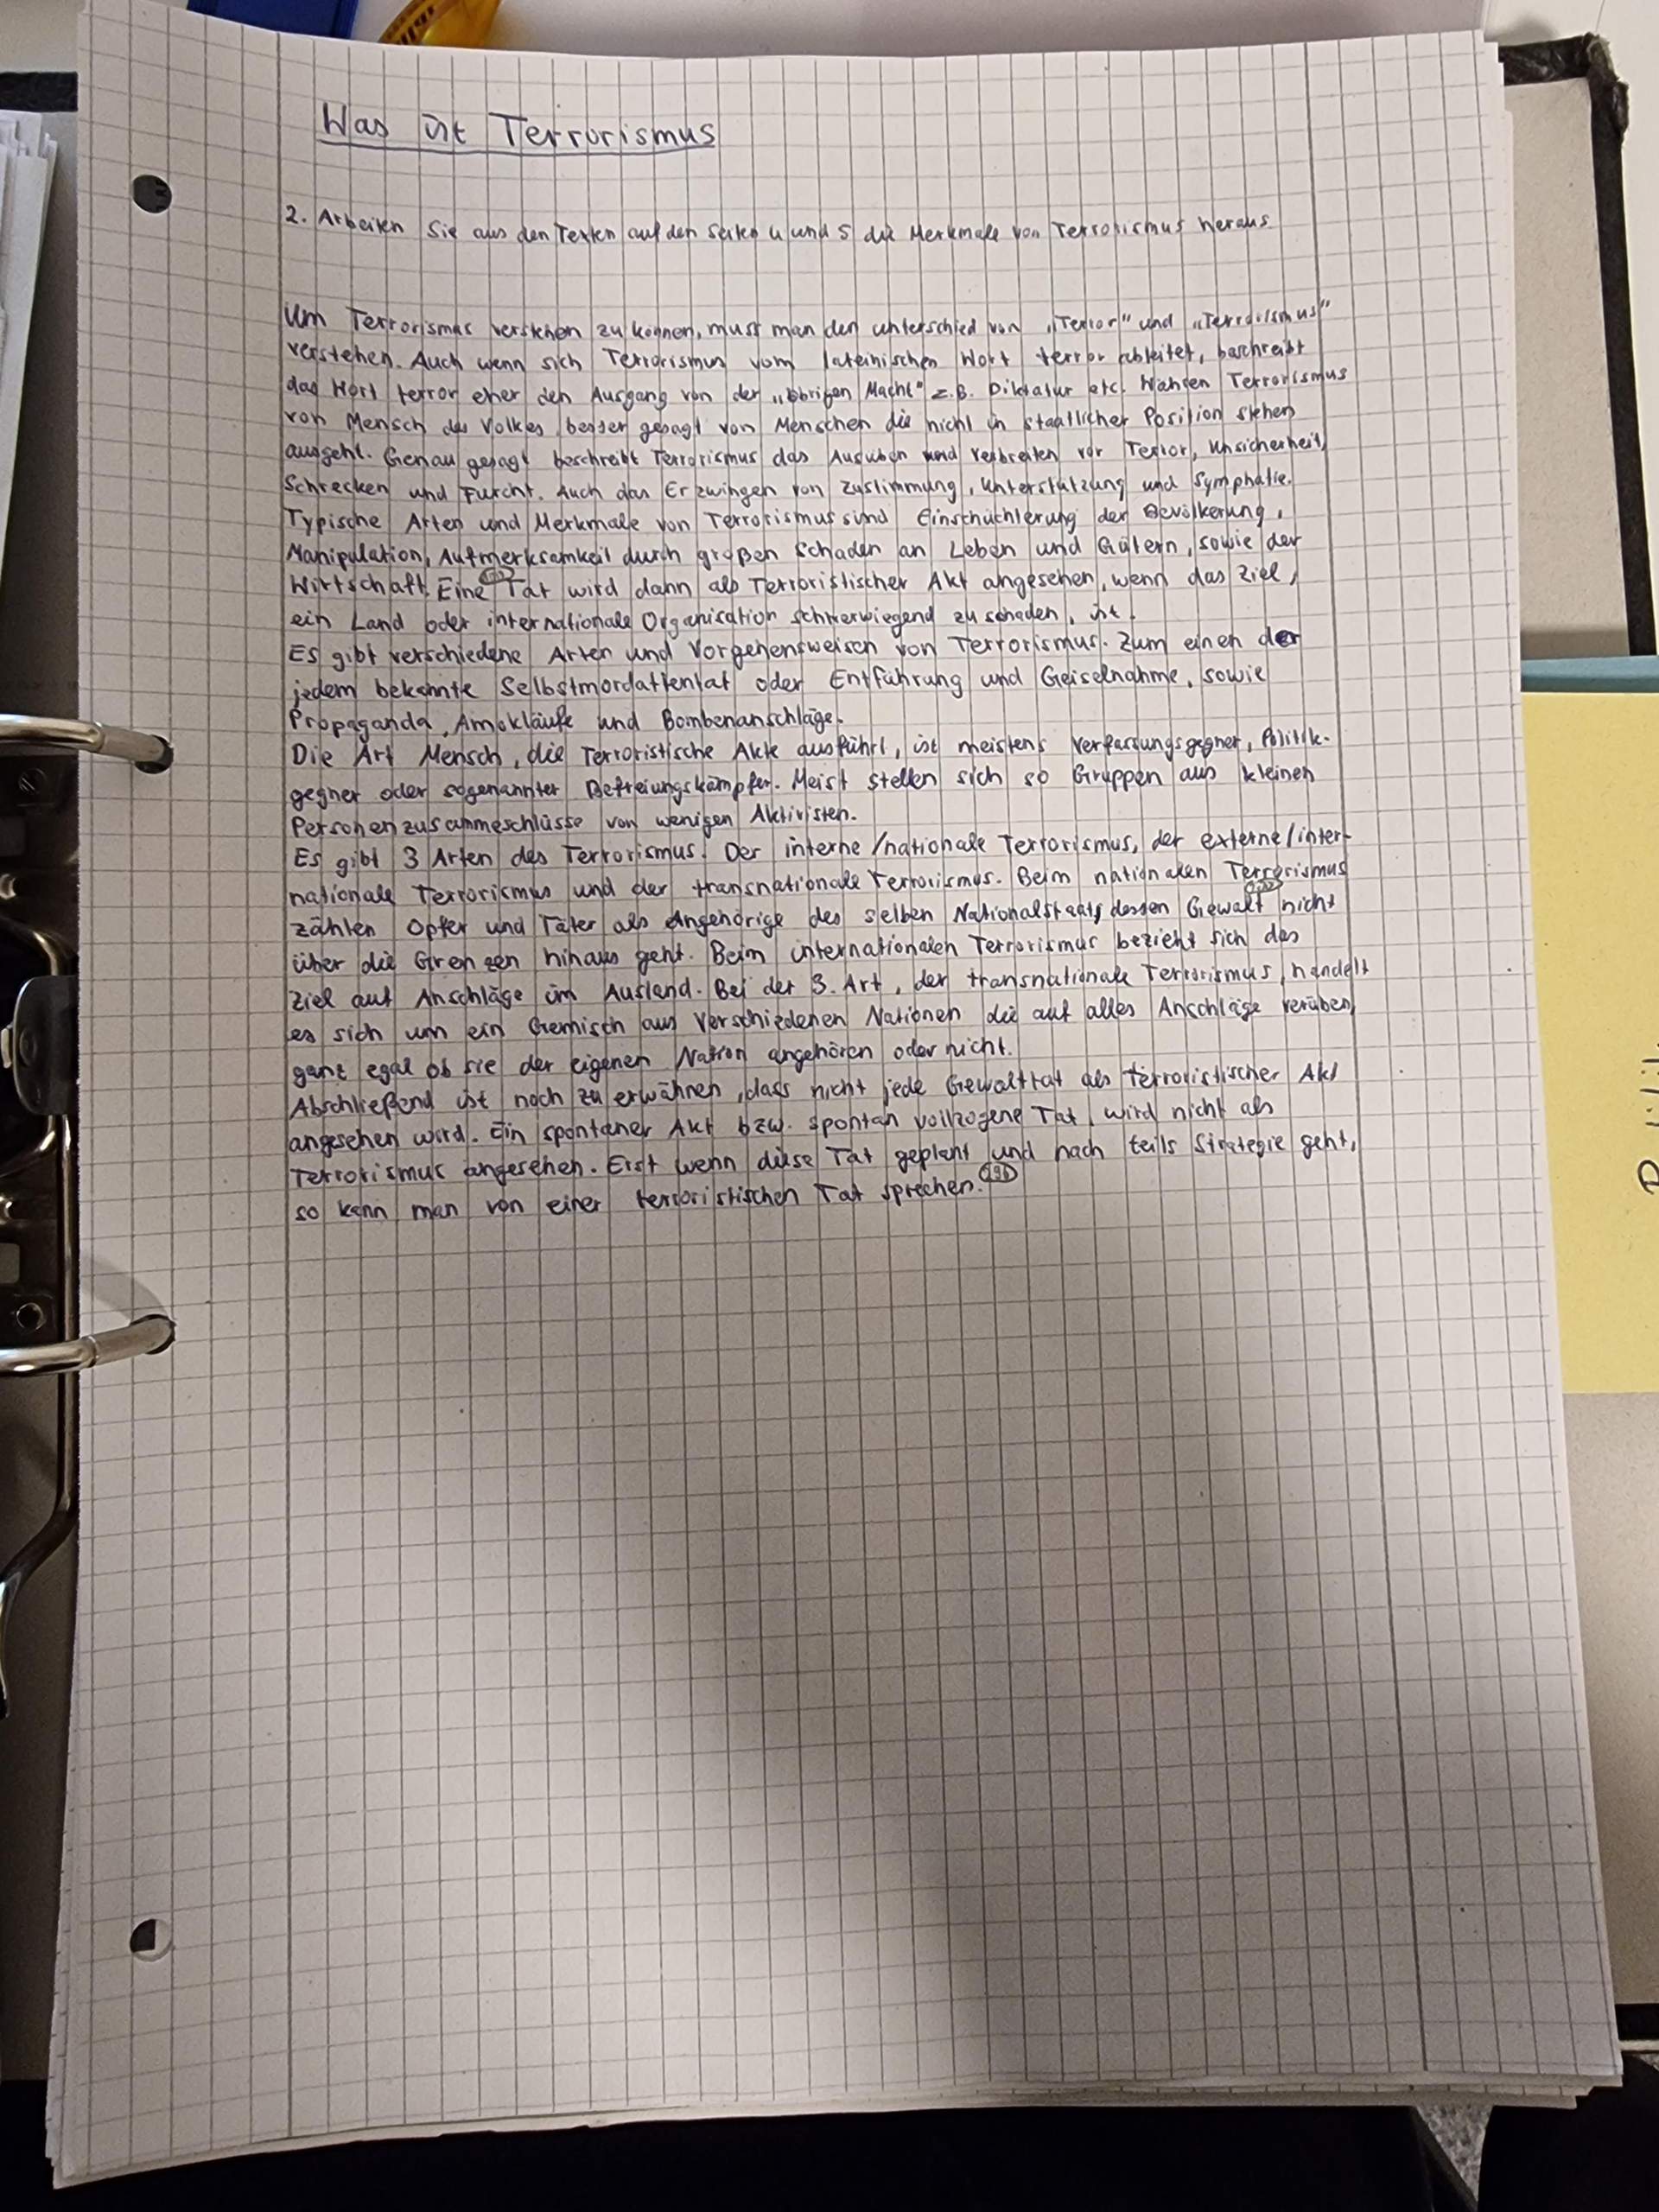 Was ist Terrorismus
2. Arbeiten Sie aus den Texten auf den Seiten 4 und 5 die Merkmale von Terrorismus heraus
Um Terrorismus verstehen zu können, muss man den unterschied von „Terror" und „Terrorismus"
verstehen. Auch wenn sich Terrorismus vom lateinischen Wort terror ableitet, beschreibt
das Wort terror eher den Ausgang von der „obrigen Macht" z.B. Diktatur etc. Währen Terrorismus
von Mensch des Volkes, besser gesagt von Menschen die nicht in staatlicher Position stehen
ausgeht. Genau gesagt beschreibt Terrorismus das Ausüben und verbreiten vor Terror, Unsicherheit,
Schrecken und Furcht. Auch das Erzwingen von Zustimmung, Unterstützung und Symphatie.
Typische Arten und Merkmale von Terrorismus sind Einschüchterung der Bevölkerung,
Manipulation, Aufmerksamkeit durch großen Schaden an Leben und Gütern, sowie der
Wirtschaft. Eine Tat wird dann als Terroristischer Akt angesehen, wenn das Ziel,
ein Land oder internationale Organisation schwerwiegend zu schaden, ist.
Es gibt verschiedene Arten und Vorgehensweisen von Terrorismus. Zum einen der
jedem bekannte Selbstmordattentat oder Entführung und Geiselnahme, sowie
Propaganda, Amokläufe und Bombenanschläge.
Die Art Mensch, die Terroristische Akte ausführt, ist meistens Verfassungsgegner, Politik-
gegner oder sogenannter Befreiungskämpfer. Meist stellen sich so Gruppen aus kleinen
Personenzusammeschlüsse von wenigen Aktivisten.
Es gibt 3 Arten des Terrorismus. Der interne/nationale Terrorismus, der externe/inter-
nationale Terrorismus und der transnationale Terrorismus. Beim nationalen Terrorismus
zählen Opfer und Täter als Angehörige des selben Nationalstaats, dessen Gewalt nicht
über die Grenzen hinaus geht. Beim internationalen Terrorismus bezieht sich das
Ziel auf Anschläge im Ausland. Bei der 3. Art, der transnationale Terrorismus, handelt
es sich um ein Gemisch aus Verschiedenen Nationen die auf alles Anschläge verüben,
ganz egal ob sie der eigenen Nation angehören oder nicht.
Abschließend ist noch zu erwähnen, dass nicht jede Gewalttat als terroristischer Akt
angesehen wird. Ein spontaner Akt bzw. spontan vollzogene Tat, wird nicht als
Terrorismus angesehen. Erst wenn diese Tat geplant und nach teils Strategie geht,
so kann man von einer terroristischen Tat sprechen.